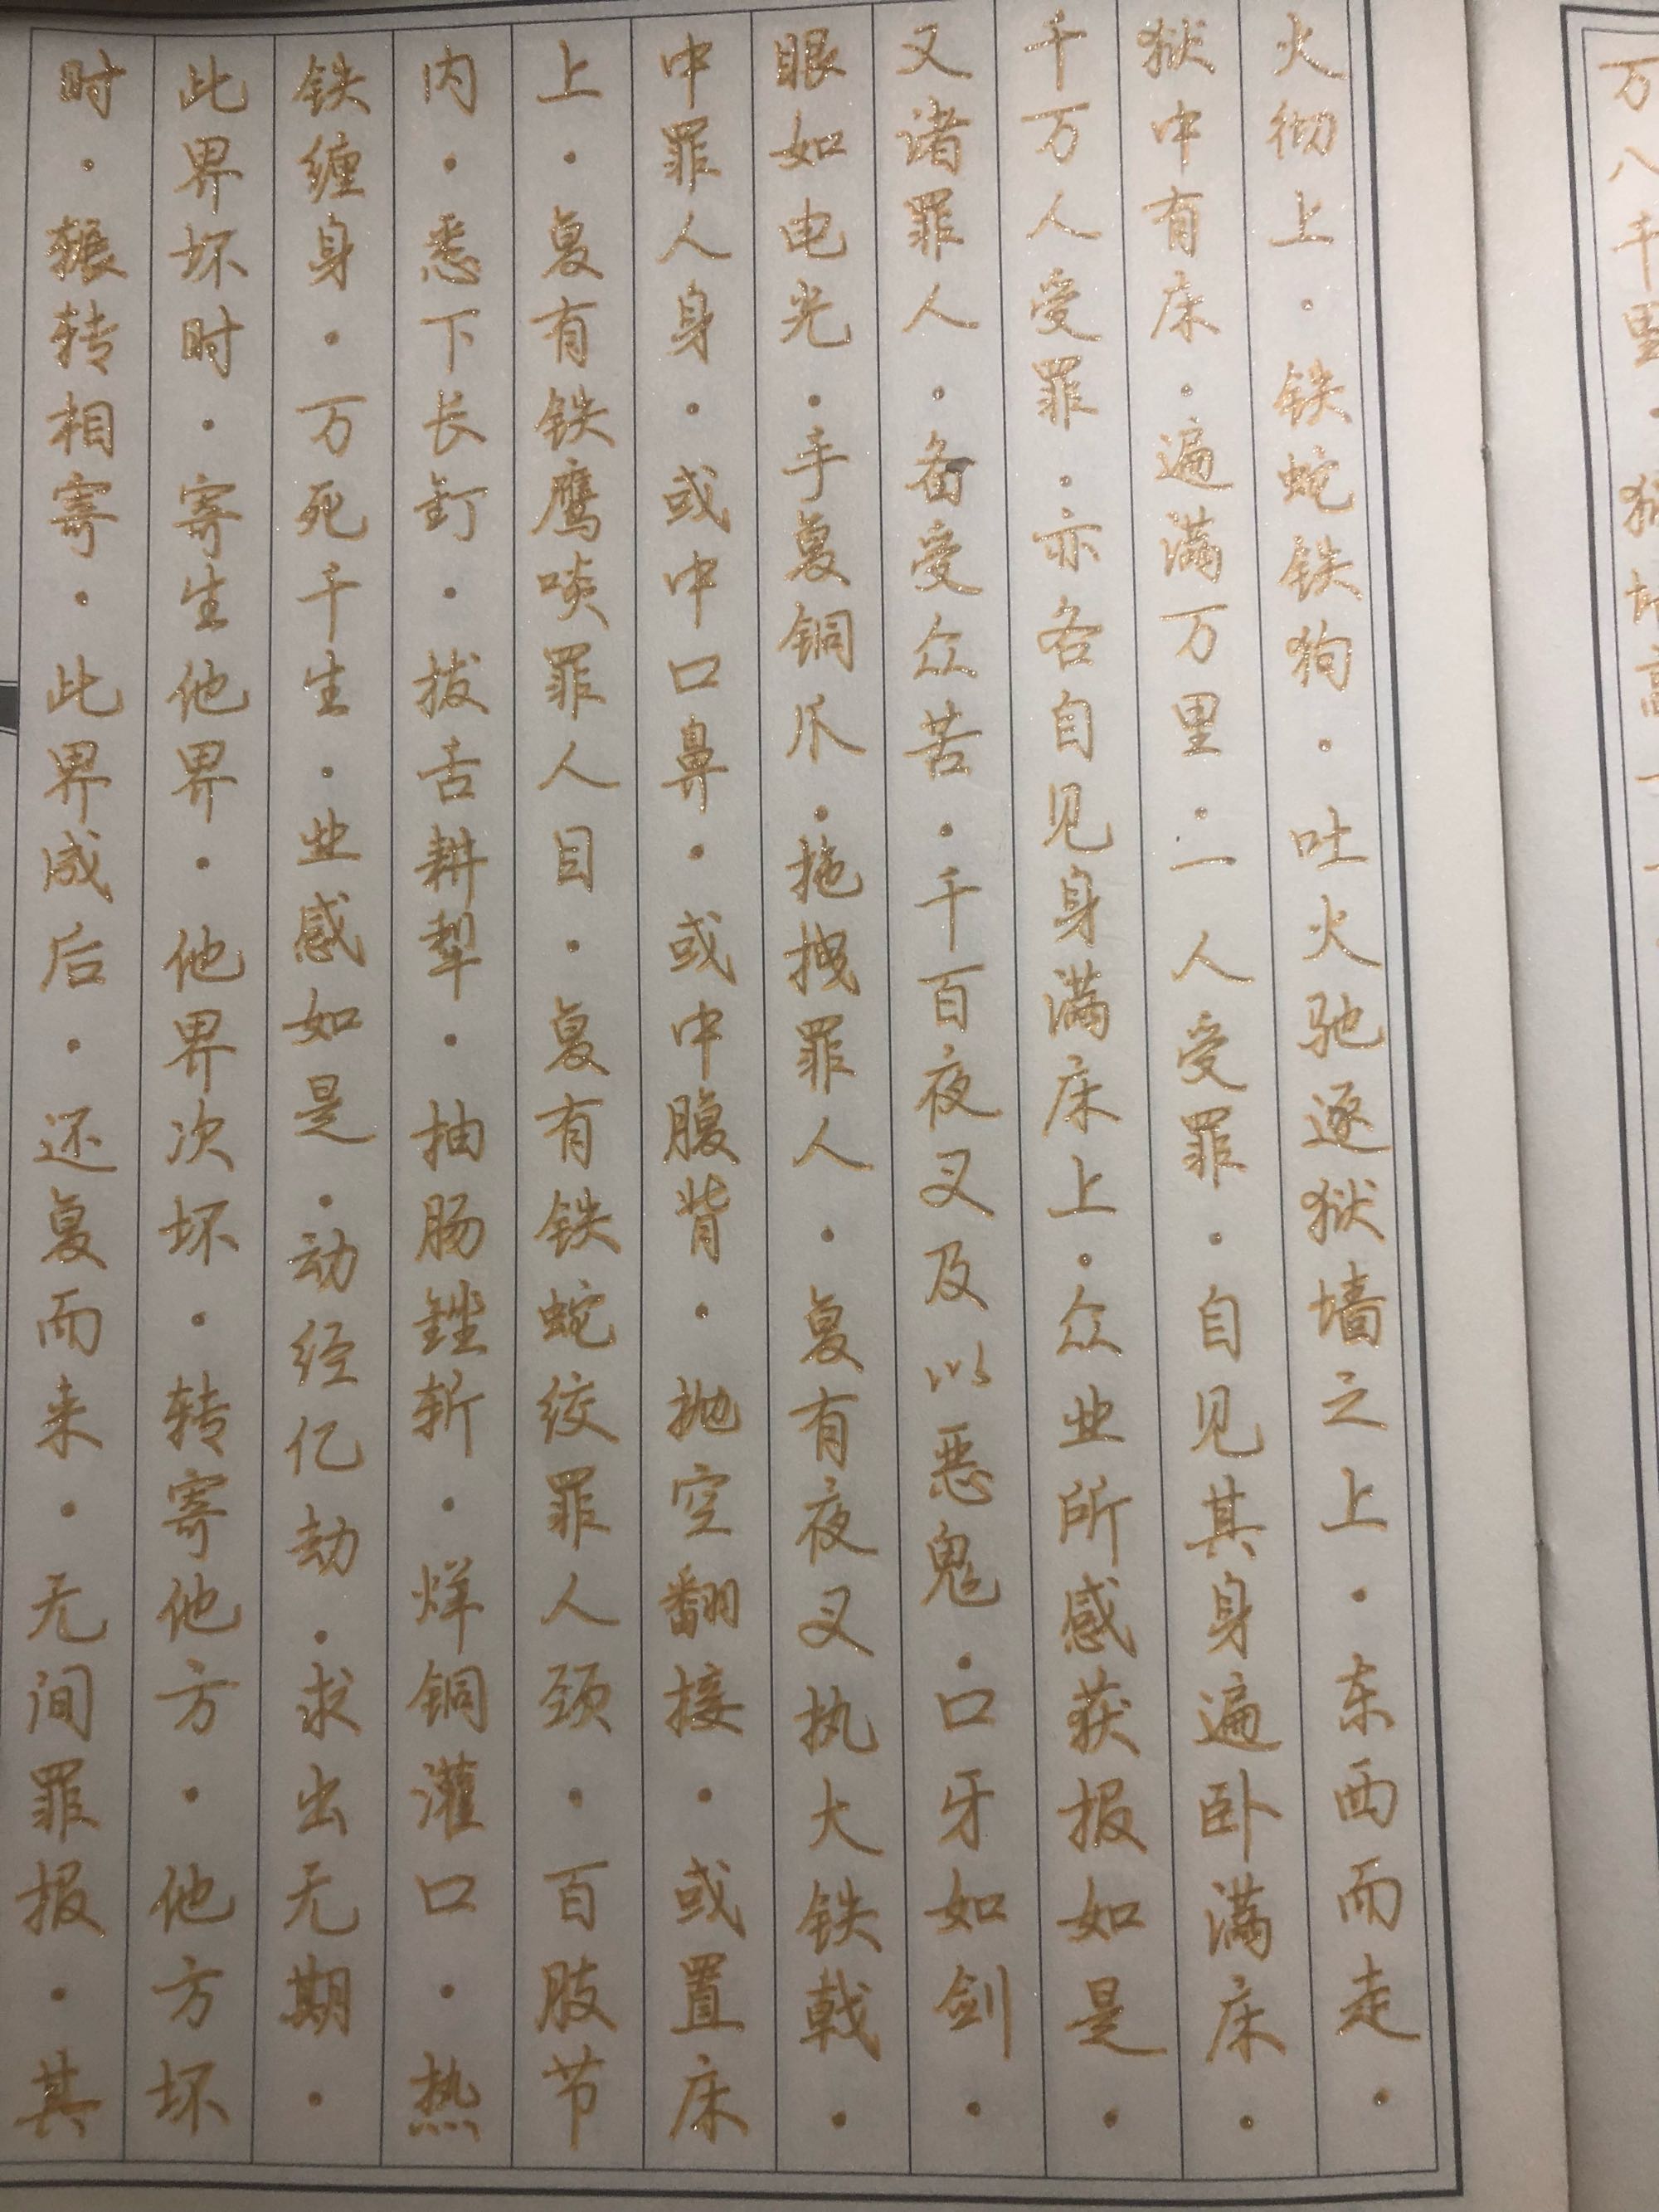 万八千里·狱墙高一
火彻上·铁蛇铁狗·吐火驰逐狱墙之上·东西而走·
狱中有床·遍满万里·一人受罪·自见其身遍卧满床·
千万人受罪·亦各自见身满床上·众业所感获报如是·
又诸罪人·备受众苦·千百夜叉及以恶鬼·口牙如剑·
眼如电光·手复铜爪·拖拽罪人·复有夜叉执大铁戟·
中罪人身·或中口鼻·或中腹背·抛空翻接·或置床
上·复有铁鹰啖罪人目·复有铁蛇绞罪人颈·百肢节
内·悉下长钉·拔舌耕犁·抽肠锉斩·烊铜灌口·热
铁缠身·万死千生·业感如是·动经亿劫·求出无期·
此界坏时·寄生他界·他界次坏·转寄他方·他方坏
时·辗转相寄·此界成后·还复而来·无间罪报·其